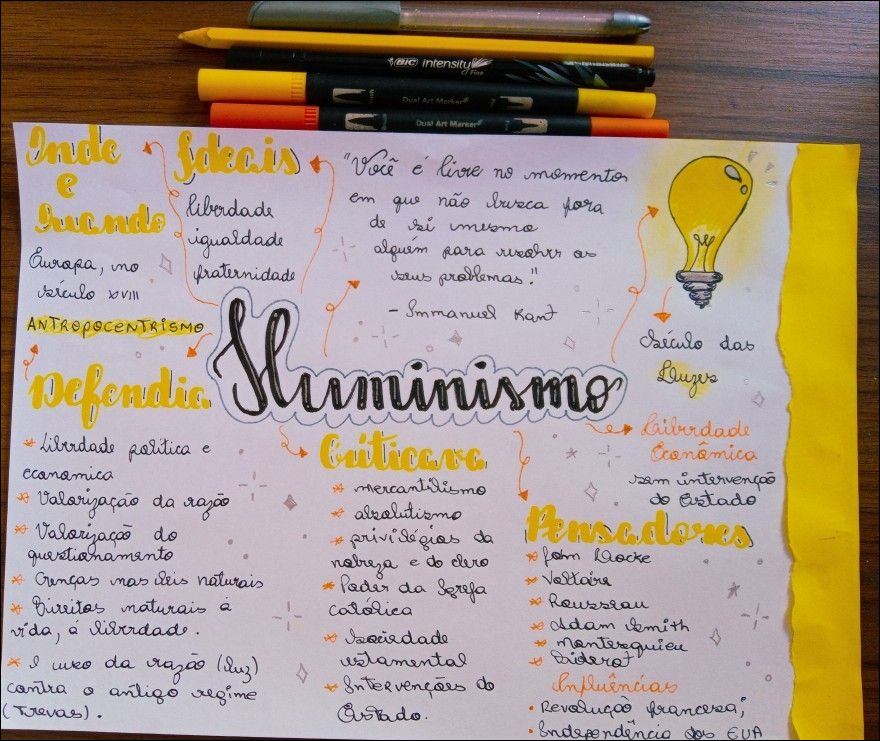 BIC intensity
Fine
Dual Art Marker
Dual Art Marker
Onde
e
Quando
Europa, no
século XVIII
ANTROPOCENTRISMO
Ideais
liberdade
igualdade
fraternidade
"Você é livre no momento
em que não busca fora
de si mesmo
alguém para resolver os
seus problemas."
- Immanuel Kant
Século das
Luzes
Iluminismo
Defendia
* Liberdade política e
economica
* Valorização da razão
* Valorizaçao do
questionamento
* Crenças nas leis naturais
* Direitos naturais à
vida, à liberdade.
* O uso da razão (luz)
contra o antigo regime
(Trevas).
Criticava
* mercantilismo
* absolutismo
* privilégios da
nobreza e do clero
* Poder da Igreja
católica
* Sociedade
estamental
* Intervenções do
Estado.
Liberdade
Econômica
sem intervenção
do Estado
Pensadores
* John Locke
* Voltaire
* Rousseau
* Adam Smith
* Montesquieu
* Diderot
Influências
• Revolução francesa;
• Independência dos EUA